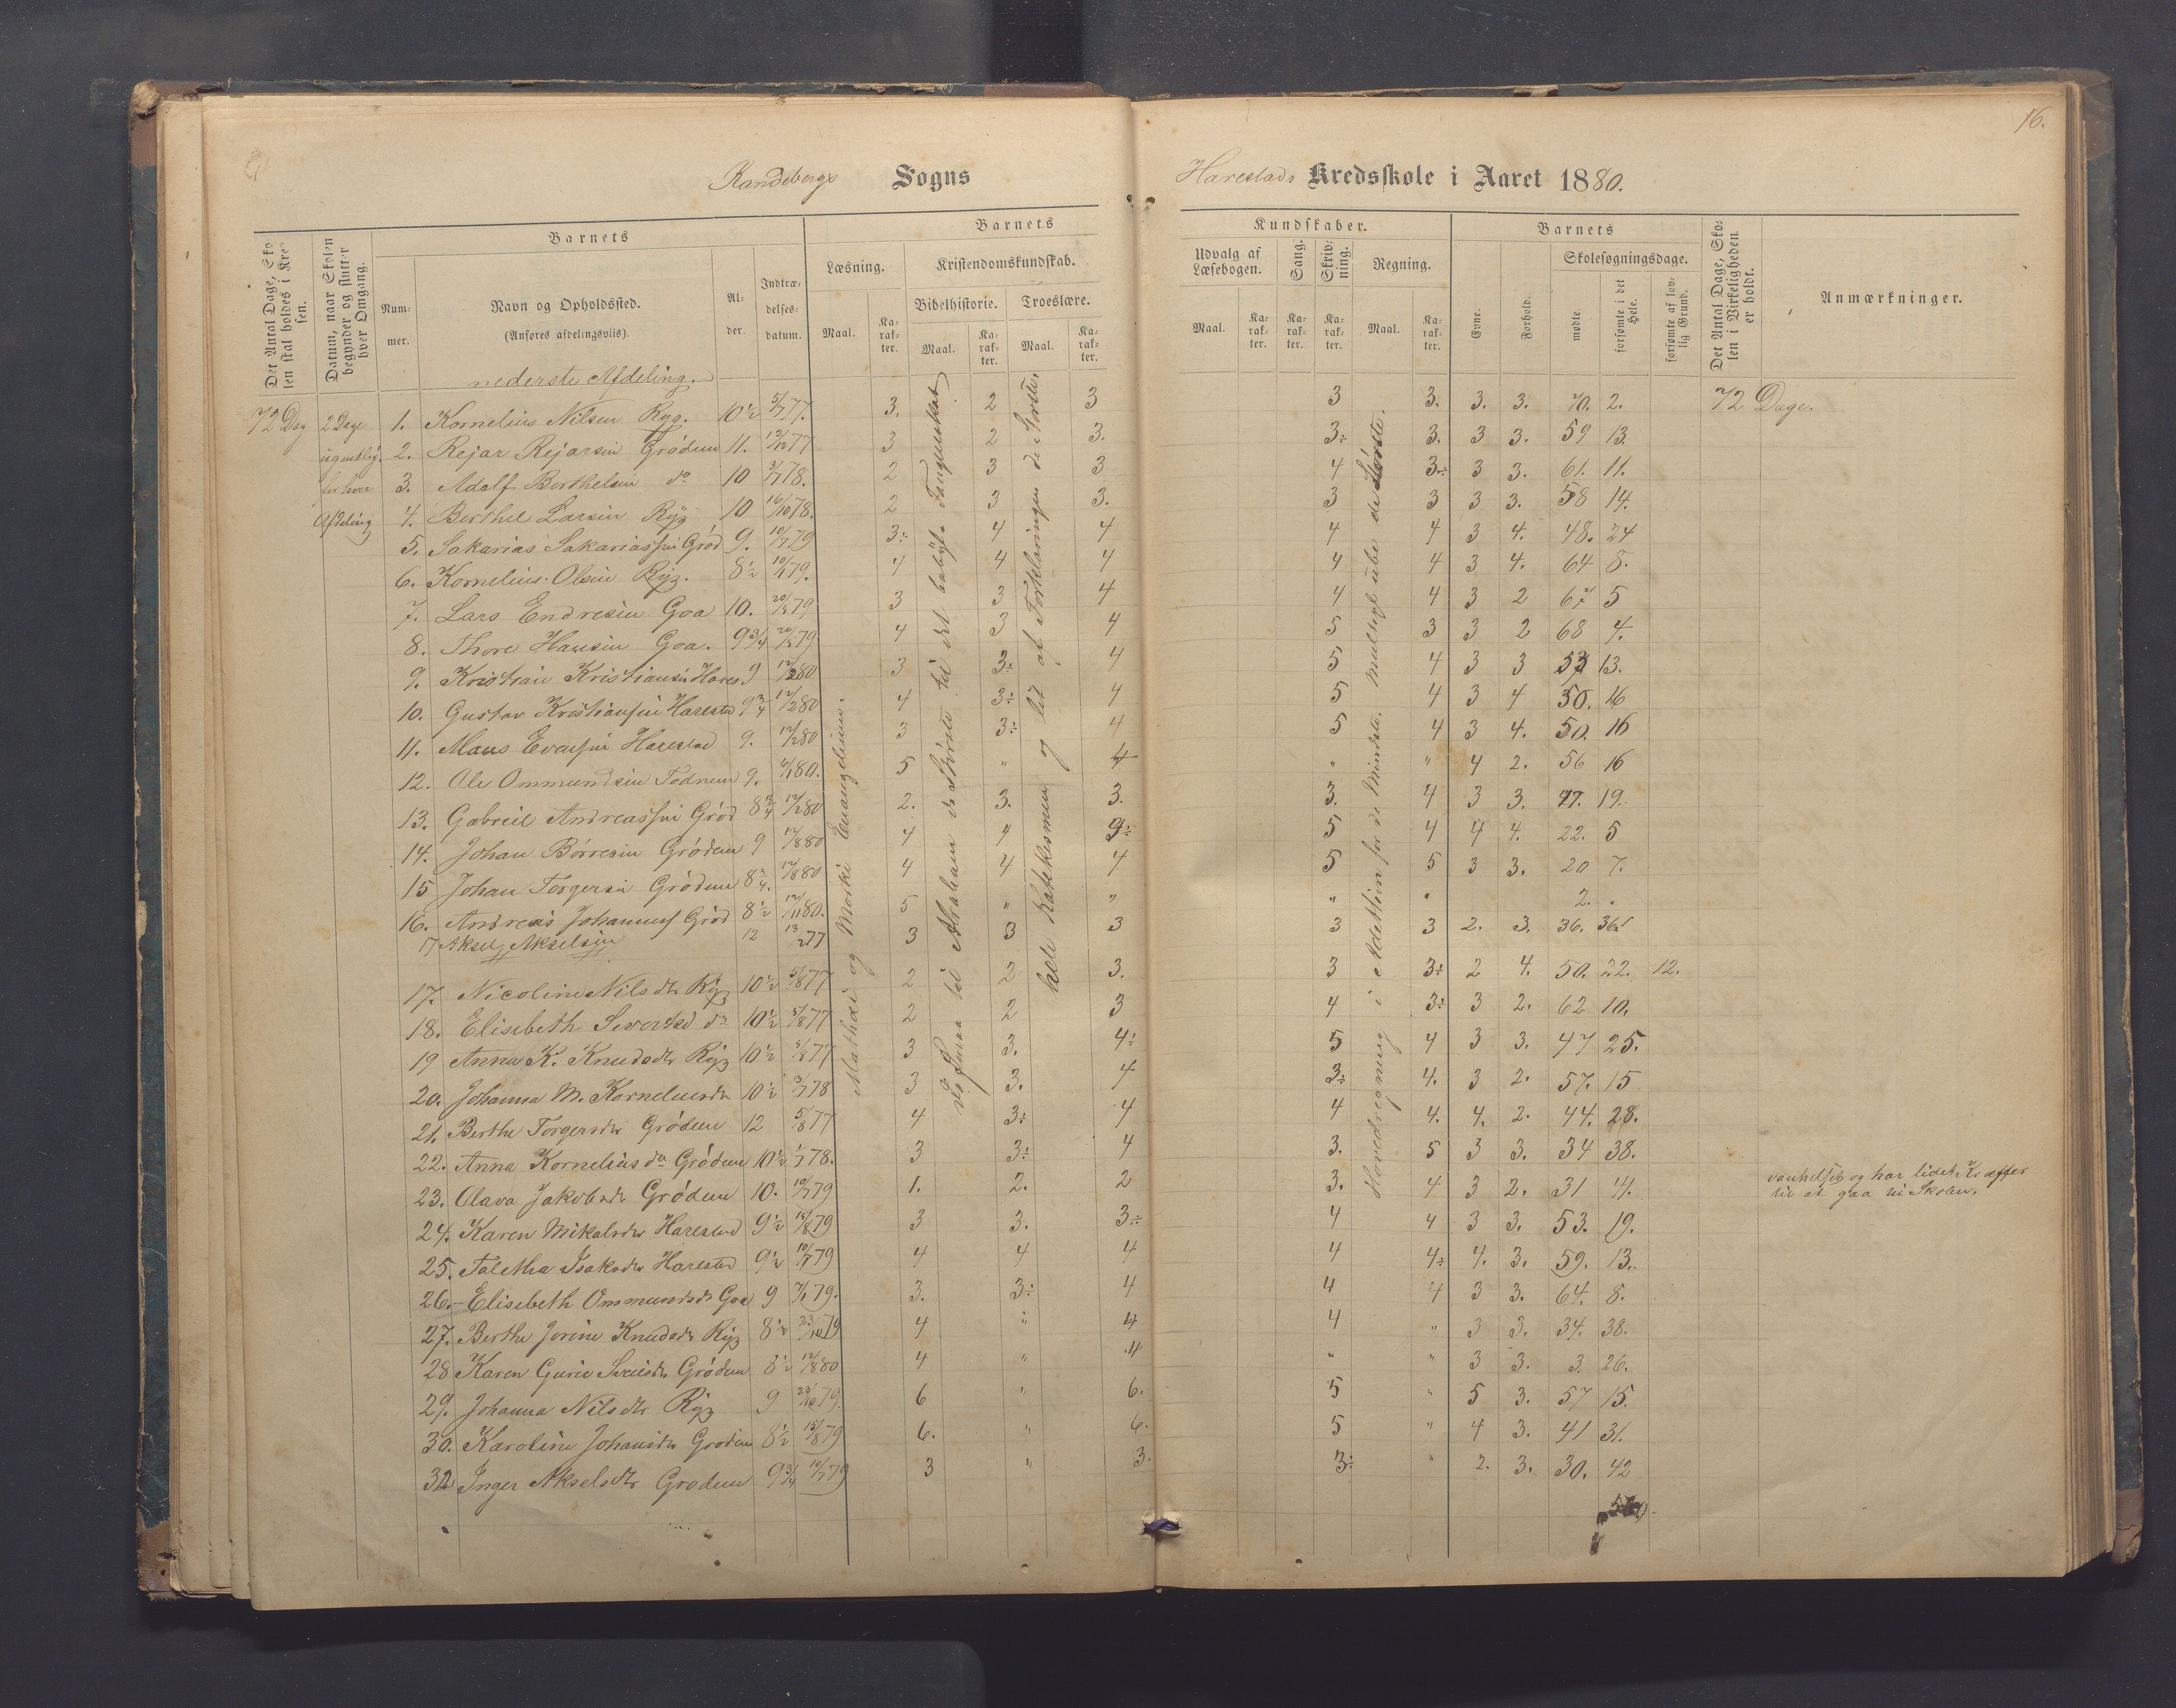 16.
Randebergs Sogns
Harestads Kredsskole i Aaret 1880.
Det Antal Dage, Skolen skal holdes i Kredsen.
Datum, naar Skolen begynder og slutter hver Omgang.
Barnets
Nummer.
Navn og Opholdssted.
(Anføres afdelingsviis).
Alder.
Indtrædelsesdatum.
Barnets
Læsning.
Kristendomskundskab.
Bibelhistorie. Troeslære.
Maal. Karakter. Maal. Karakter. Maal. Karakter.
Kundskaber.
Udvalg af Læsebogen.
Sang.
Skrivning.
Regning.
Maal. Karakter. Karakter. Karakter. Maal. Karakter.
Barnets
Evne. Forhold.
Skolesøgningsdage.
mødte. forsømte i det Hele. forsømte af lovlig Grund.
Det Antal Dage, Skolen i Virkeligheden er holdt.
Anmærkninger.
nederste Afdeling.
72 Dag 2 Dage 1. Kornelius Nilsen Ryg. 10½ 5/7 77. 3. 2 3 3 3. 3. 3. 70. 2. 72 Dage.
ugentlig 2. Rejar Rejarsen Grødem 11. 12/12 77 3 2 3. 3÷ 3. 3 3. 59 13
for hver 3. Adolf Berthelsen do 10 3/7 78. 2 3 3 4 3÷ 3 3. 61. 11.
Afdeling 4. Berthel Larsen Ryg 10 16/10 78. 2 3 3. 3 3 3 3. 58 14.
5. Sakarias Sakariassen Grød 9. 10/7 79 3÷ 4 4 4 4 3 4. 48. 24
6. Kornelius Olsen Ryg. 8½ 10/7 79. 4 4 4 4 4 3 4. 64 8.
7. Lars Endresen Goa 10. 79 3 3 4 4 4 3 2 67 5
8. Thore Hansen Goa. 9¾ 79 4 3 4 5 3 3 2 68 4.
9. Kristian Kristiansen Hares 9 12/2 80 3 3÷ 4 5 4 3 3 13.
10. Gustav Kristiansen Harestad 9¾ 12/2 80 4 3÷ 4 5 4 3 4 50. 16
11. Maus Evensen Harestad 9. 12/2 80 3 3÷ 4 5 4 3 4. 50. 16
12. Ole Ommundsen Todnem 9. 80. 5 " 4 " " 4 2. 56 16
13. Gabriel Andreassen Grød 8¾ 12/2 80 2. 3. 3. 3. 4 3 3. 19.
14. Johan Børresen Grødem 9 12/8 80 4 4 5 4 4 4. 22. 5
15 Johan Torgersen Grødem 8¾. 12/8 80 4 4 4 5 5 3 3. 20 7.
16. Andreas Johanness Grød 8½ 12/11 80. 5 " " " 2.
17 Aksel Akselsen 12 13/2 77 3 3 3 3 3 2. 3. 36. 36
17. Nicoline Nilsdtr Ryg 10½ 5/8 77 2 2 3. 3 3÷ 2 4. 50. 22. 12.
18. Elisebeth Sivertsd do 10½ 5/8 77 2 2 3 4 3÷ 3 2. 62 10.
19 Anna K. Knudsdtr Ryg 10½ 5/8 77 3 3. 4÷ 5 4 3 3. 47 25.
20. Johanna M. Korneliusdtr 10½ 3/7 78 3 3. 4 3÷ 4. 3 2. 57. 15
21. Berthe Torgersdtr Grødem 12 5/8 77 4 3÷ 4 4 4. 4. 2. 44. 28.
22. Anna Korneliusdtr Grødem 10½ 1/7 78. 3 3÷ 4 3. 5 3 3. 34 38.
23. Olava Jakobsdtr Grødem 10. 10/7 79 1. 2. 2 3. 4 3 2. 31 41. og har lidet Kræfter
til at gaa til Skolen.
24. Karen Mikalsdtr Harestad 9½ 18/8 79 3 3. 3÷ 4 4 3 3. 53. 19.
25. Taletha Isaksdtr Harestad 9½ 10/7 79 4 4 4 4 4÷ 4. 3. 59. 13.
26. Elisebeth Ommundsdtr Goa 9 79. 3. 3÷ 4 4 4 3 3. 64. 8.
27. Berthe Jorine Knudsdtr Ryg 8½ 23/10 79 4 " 4 4 " 3 3. 34. 38.
28 Karen Gurie Sveisdtr Grødem 8½ 12/8 80 4 " 4 " " 3 3. 3. 26.
29. Johanna Nilsdtr Ryg 9 79. 6 " 6. 5 " 5 3. 57 15.
30. Karoline Johansdtr Grødem 8½ 18/8 79 6. " 6. 5 " 4 3. 41 31.
32 Inger Akselsdtr Grødem 9¾ 10/7 79 3 " 3. 3÷ " 2. 3. 30. 42
Mathæi og Marki Evangelium.
De Smaa til Abraham de Største til det babylo. Fangenskab
hele Katekismen og lit af Forklaringen de Største.
Hovedregning i Addition for de Mindste. Multopl. ube. de Største.